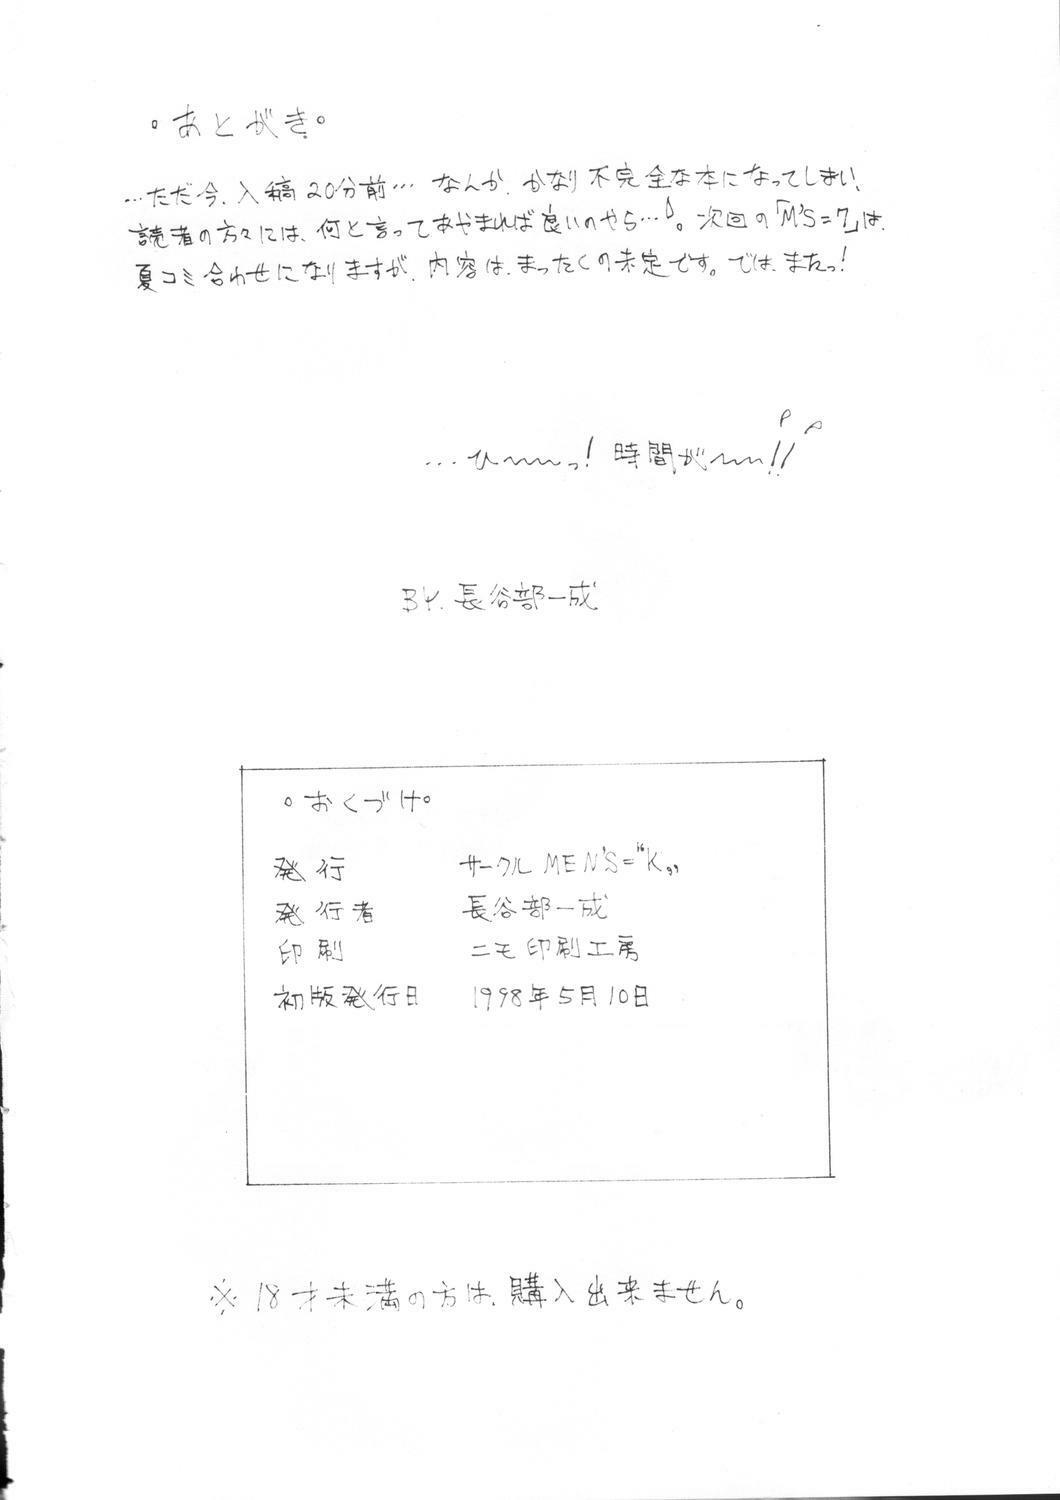 。あとがき。
…ただ今、入稿20分前… なんか、かなり不完全な本になってしまい、
読者の方々には、何と言ってあやまれば良いのやら…。次回の「M'S=7」は、
夏コミ合わせになりますが、内容は、まったくの未定です。では、またっ!
…ひ〜〜っ! 時間が〜〜!!
BY. 長谷部一成
。おくづけ。
発行 サークル MEN'S="K"
発行者 長谷部一成
印刷 ニモ印刷工房
初版発行日 1998年5月10日
※18才未満の方は、購入出来ません。